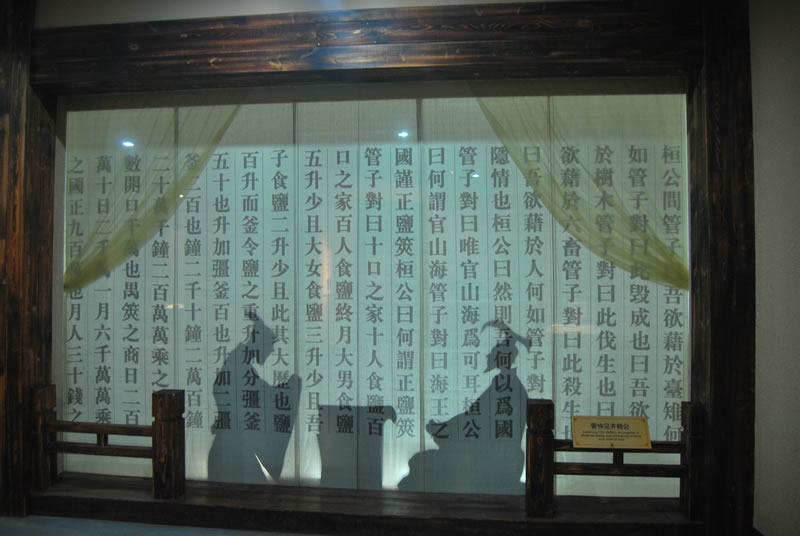 桓公問管子曰吾欲藉於臺雉何
如管子對曰此毀成也曰吾欲
於樹木管子對曰此伐生也曰
欲藉於六畜管子對曰此殺生
曰吾欲藉於人何如管子對
隱情也桓公曰然則吾何以爲國
管子對曰唯官山海爲可耳桓公
曰何謂官山海管子對曰海王之
國謹正鹽筴桓公曰何謂正鹽筴
管子對曰十口之家十人食鹽百
口之家百人食鹽終月大男食鹽
五升少且大女食鹽三升少且吾
子食鹽二升少且此其大歷也鹽
百升而釜令鹽之重升加分彊釜
五十也升加彊釜百也升加二彊
釜二百也鐘二千十鐘二萬百鐘
二十萬千鐘二百萬萬乘之
數開口千萬也禺筴之商日二百
萬十日二千萬一月六千萬萬乘
之國正九百萬也月人三十錢之
管仲见齐桓公